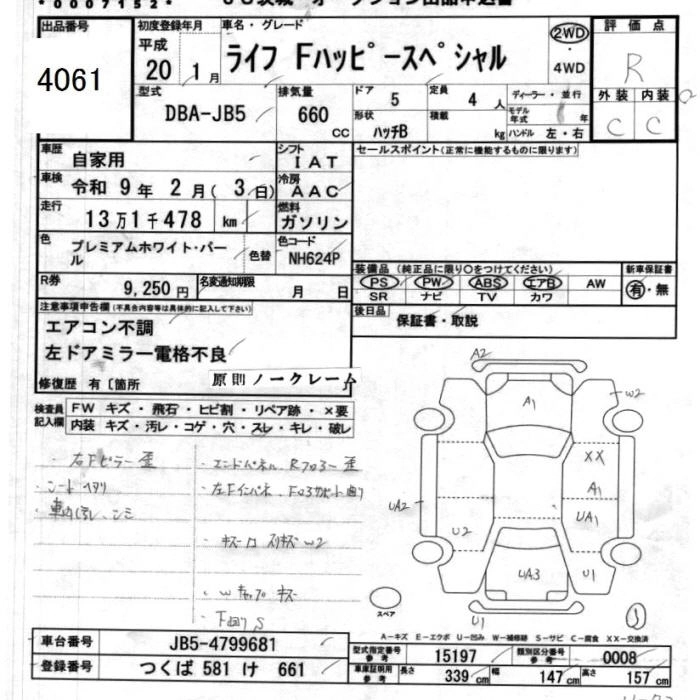 *0007152*
出品番号
4061
初度登録年月
平成
20 1月
車名・グレード
ライフ Fハッピースペシャル
2WD
・
4WD
評価点
R
外装 内装
C C
型式
DBA-JB5
排気量
660
cc
ドア
5
定員
4 人
形状
ハッチB
積載
kg
ディーラー・並行
モデル
年式 年
ハンドル 左・右
車歴
自家用
シフト
IAT
セールスポイント(正常に機能するものに限ります)
車検
令和 9年 2月( 3日)
冷房
AAC
走行
13万1千478 km
燃料
ガソリン
色
プレミアムホワイト・パー
ル
色替
色コード
NH624P
R券
9,250円
名変通知期限
月 日
装備品 (純正品に限り○をつけてください)
PS PW ABS エアB AW
SR ナビ TV カワ
新車保証書
有・無
後日品
保証書・取説
注意事項申告欄(不具合内容等は具体的に記入して下さい)
エアコン不調
左ドアミラー電格不良
原則ノークレーム
修復歴 有〔箇所
検査員
記入欄
FW キズ・飛石・ヒビ割・リペア跡・×要
内装 キズ・汚レ・コゲ・穴・スレ・キレ・破レ
・右Fピラー歪
・シートヘタリ
・エンドパネル、Rフロアー歪
・キズ凹 スリキズ W2
・下回りS
A2
A1
W2
XX
A1
UA2
UA1
U2
UA3
U1
U1
スペア
A-キズ E-エクボ U-凹み W-補修跡 S-サビ C-腐食 XX-交換済
車台番号
JB5-4799681
登録番号
つくば 581 け 661
型式指定番号
参考
15197
類別区分番号
参考
0008
車庫証明用
参考
長さ
339 cm
幅
147 cm
高さ
157 cm